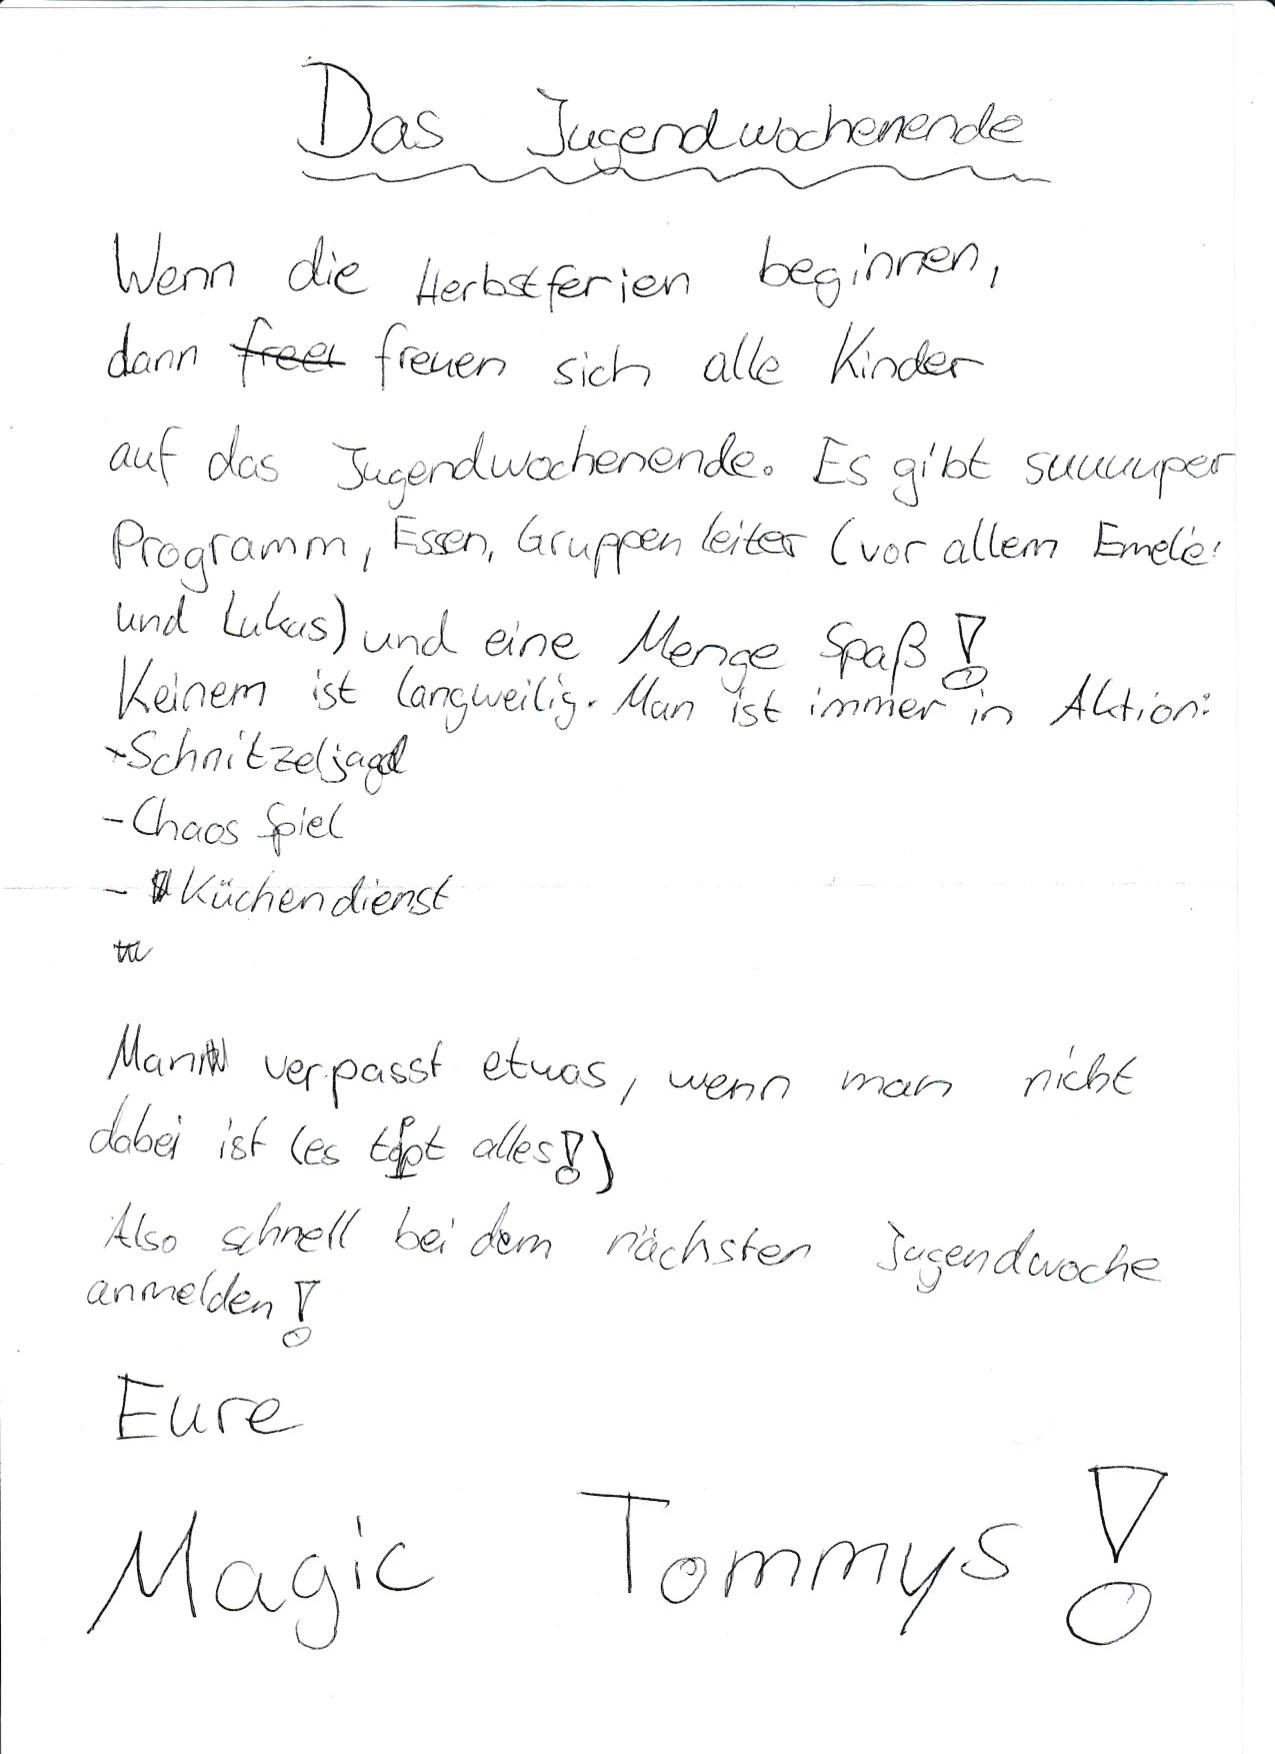 Das Jugendwochenende
Wenn die Herbstferien beginnen,
dann freuen sich alle Kinder
auf das Jugendwochenende. Es gibt suuuuper
Programm, Essen, Gruppenleiter (vor allem
und Lukas) und eine Menge Spaß!
Keinem ist langweilig. Man ist immer in Aktion:
- Schnitzeljagd
- Chaos Spiel
- Küchendienst
Man verpasst etwas, wenn man nicht
dabei ist (es topt alles!)
Also schnell bei dem nächsten Jugendwoche
anmelden!
Eure
Magic Tommys!